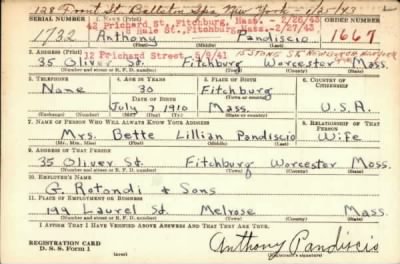 128 Front St. Ballston Spa New York - 1/25/43
SERIAL NUMBER 1. NAME (Print) ORDER NUMBER
42 Prichard St., Fitchburg, Mass. - 2/26/43
8 Hale St., Fitchburg, Mass.-2/27/43
1732 Anthony Pandiscio 1667
(First) (Middle) (Last)
12 Prichard Street 5/9/41
2. ADDRESS (Print)
35 Oliver St. Fitchburg Worcester Mass.
(Number and street or R. F. D. number) (Town) (County) (State)
3. TELEPHONE 4. AGE IN YEARS 5. PLACE OF BIRTH 6. COUNTRY OF CITIZENSHIP
None 30 Fitchburg
DATE OF BIRTH (Town or county)
July 7 1910 Mass. U.S.A.
(Exchange) (Number) (Mo.) (Day) (Yr.) (State or country)
7. NAME OF PERSON WHO WILL ALWAYS KNOW YOUR ADDRESS 8. RELATIONSHIP OF THAT PERSON
Mrs. Bette Lillian Pandiscio Wife
(Mr., Mrs., Miss) (First) (Middle) (Last)
9. ADDRESS OF THAT PERSON
35 Oliver St. Fitchburg Worcester Mass.
(Number and street or R. F. D. number) (Town) (County) (State)
10. EMPLOYER'S NAME
G. Rotondi & Sons
11. PLACE OF EMPLOYMENT OR BUSINESS
199 Laurel St. Melrose Mass
(Number and street or R. F. D. number) (Town) (County) (State)
I AFFIRM THAT I HAVE VERIFIED ABOVE ANSWERS AND THAT THEY ARE TRUE.
REGISTRATION CARD
D. S. S. Form 1 (over) Anthony Pandiscio
(Registrant's signature)